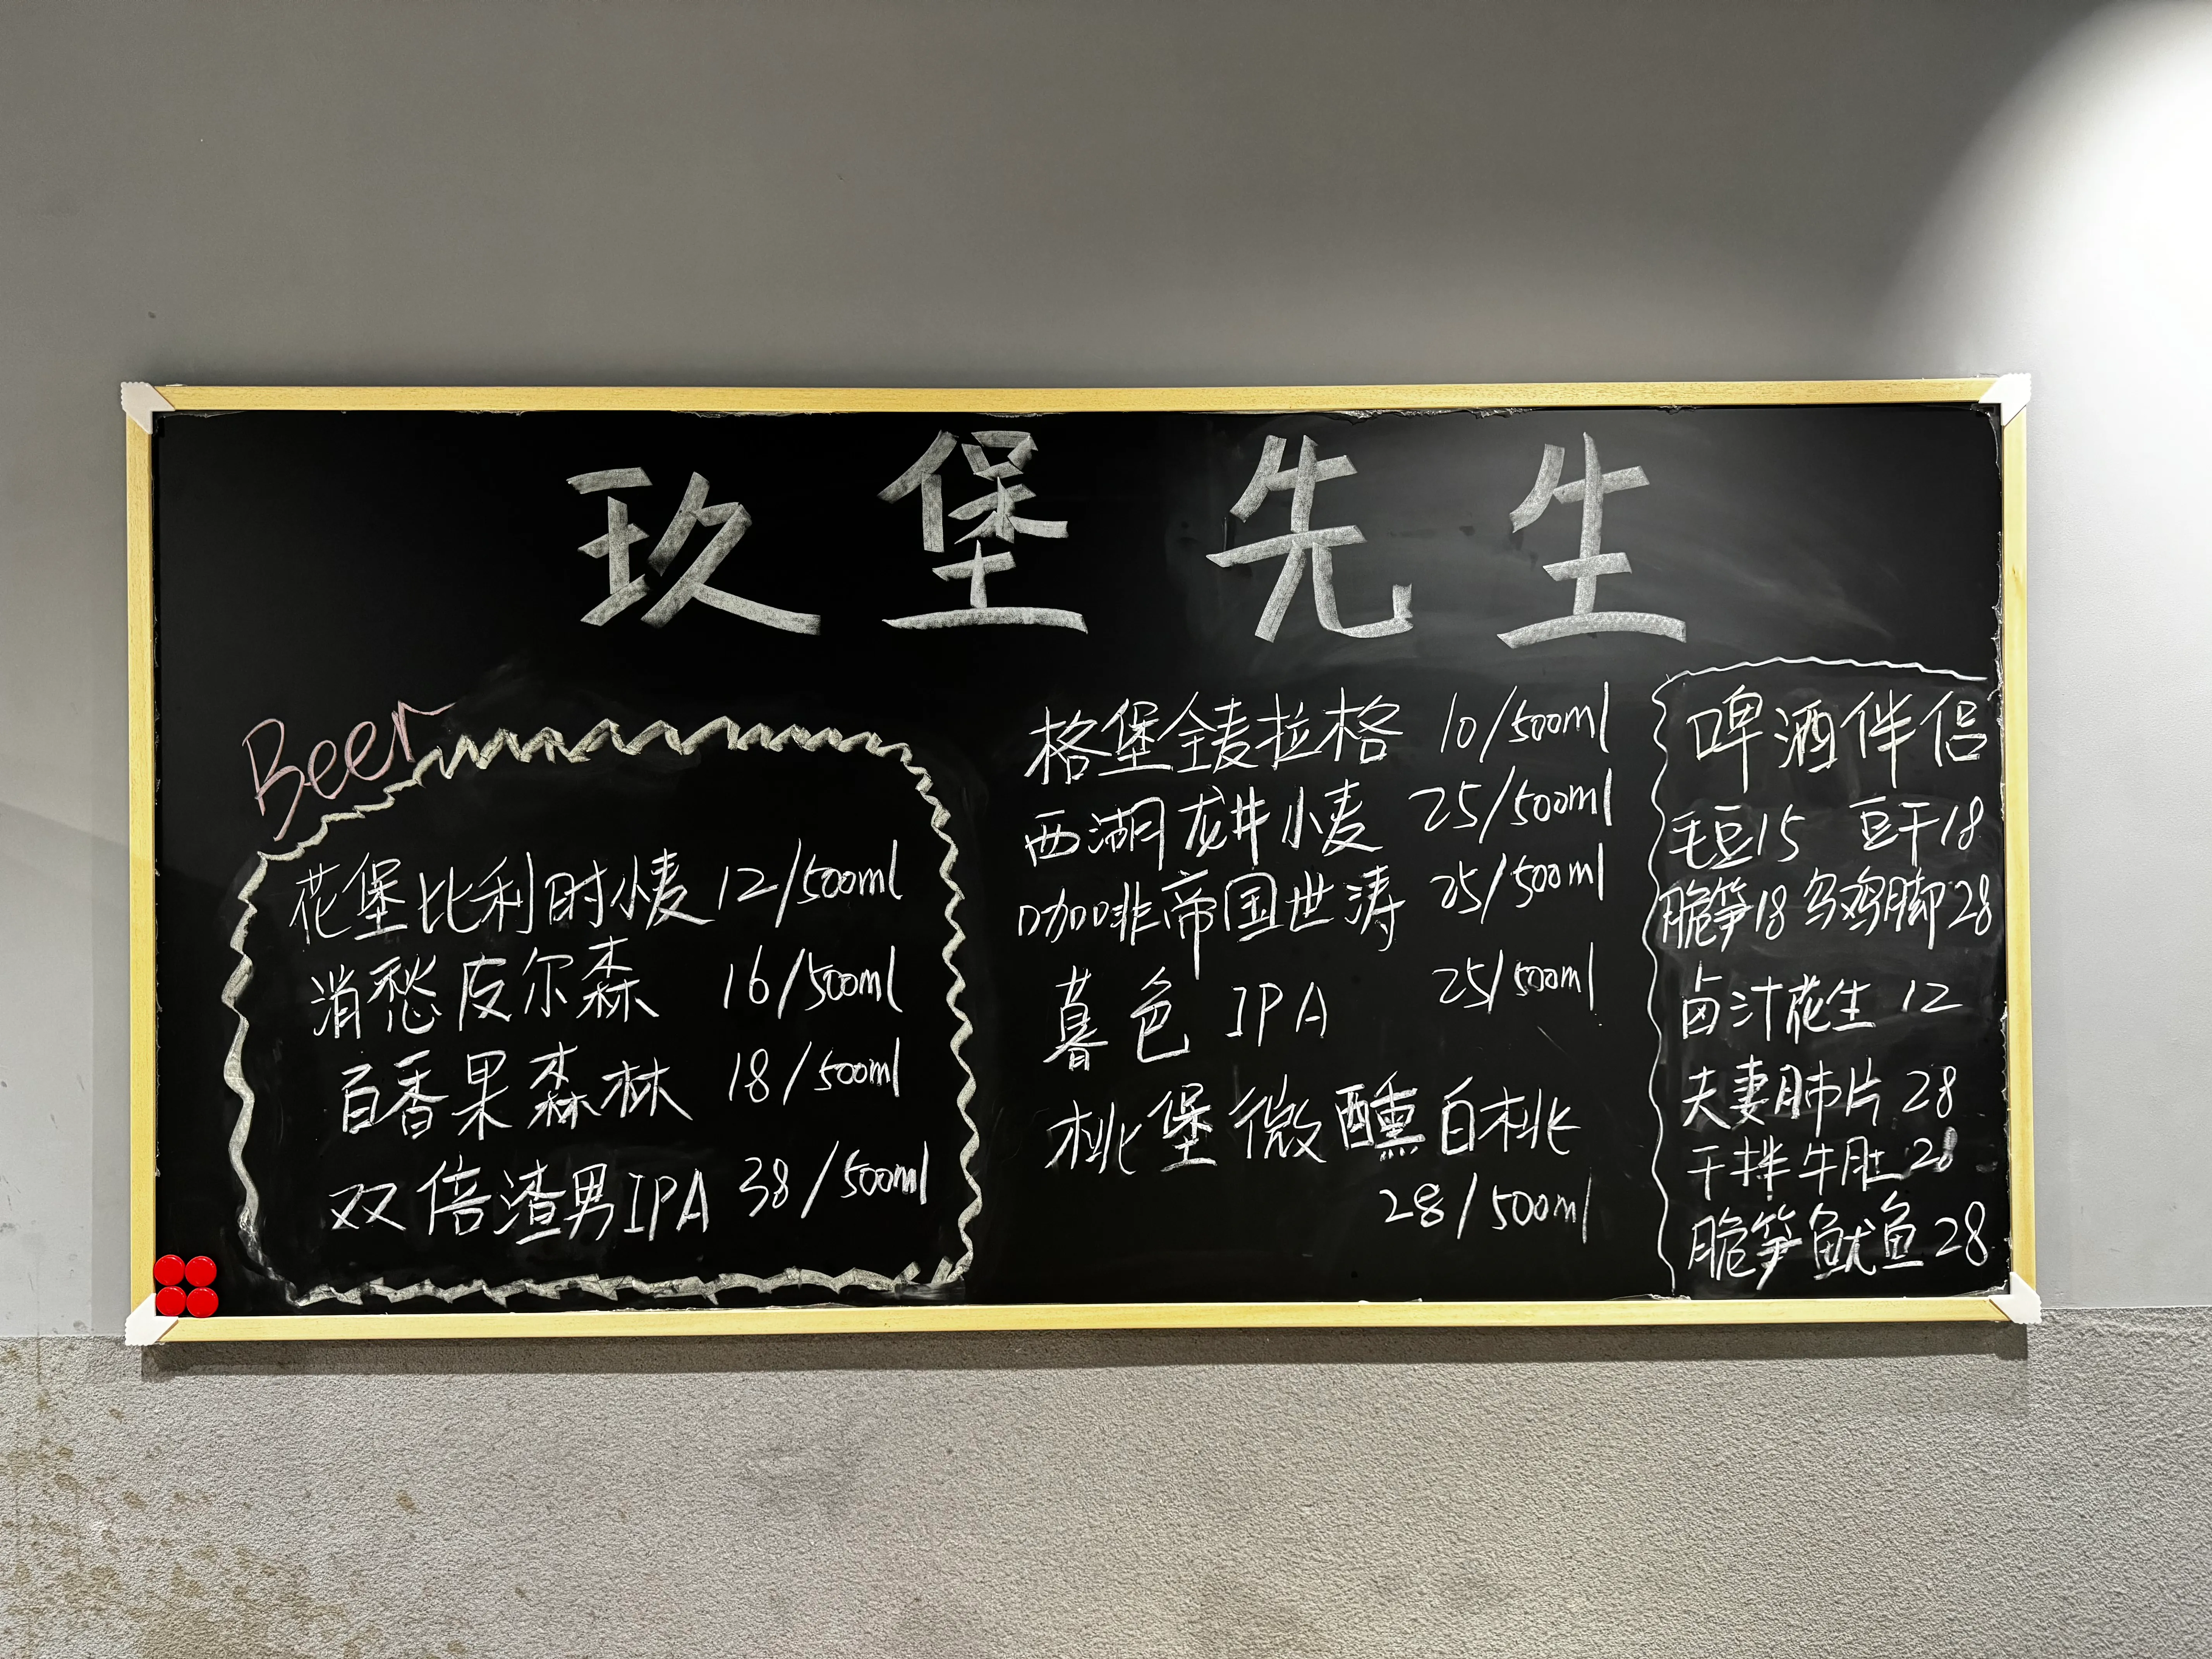 玖堡先生
Beer
花堡比利时小麦 12/500ml
消愁皮尔森 16/500ml
百香果森林 18/500ml
双倍渣男IPA 38/500ml
格堡全麦拉格 10/500ml
西湖龙井小麦 25/500ml
咖啡帝国世涛 25/500ml
暮色 IPA 25/500ml
桃堡微醺白桃
28/500ml
啤酒伴侣
毛豆15 豆干18
脆笋18 乌鸡脚28
卤汁花生 12
夫妻肺片 28
干拌牛肚 28
脆笋鱿鱼 28